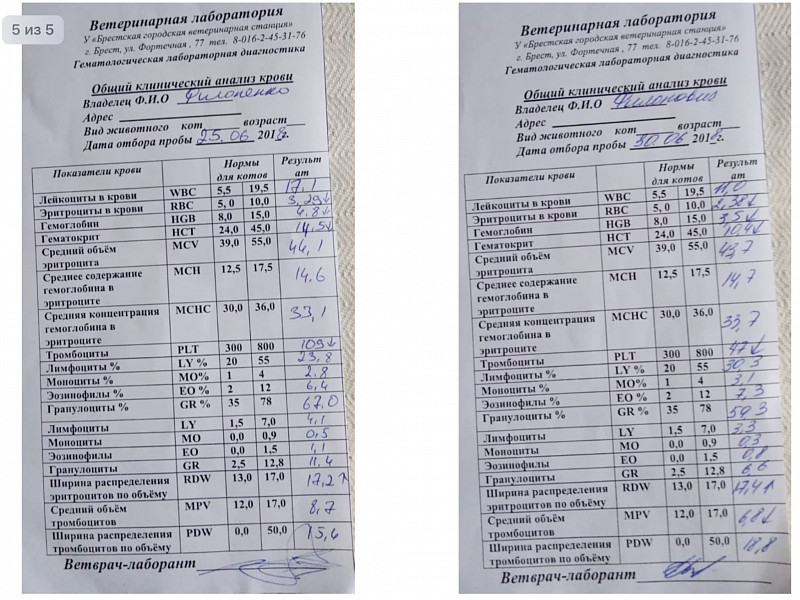 5 из 5
Ветеринарная лаборатория
У «Брестская городская ветеринарная станция»
г. Брест, ул. Фортечная , 77 тел. 8-016-2-45-31-76
Гематологическая лабораторная диагностика
Общий клинический анализ крови
Владелец Ф.И.О
Адрес
Вид животного кот возраст
Дата отбора пробы 25.06 2018г.
Показатели крови Нормы для котов Результат
Лейкоциты в крови WBC 5,5 19,5 17,1
Эритроциты в крови RBC 5,0 10,0 3,29↓
Гемоглобин HGB 8,0 15,0 4,8↓
Гематокрит HCT 24,0 45,0 14,5↓
Средний объём эритроцита MCV 39,0 55,0 44,1
Среднее содержание гемоглобина в эритроците MCH 12,5 17,5 14,6
Средняя концентрация гемоглобина в эритроците MCHC 30,0 36,0 33,1
Тромбоциты PLT 300 800 109↓
Лимфоциты % LY % 20 55 23,8
Моноциты % MO% 1 4 2.8
Эозинофилы % EO % 2 12 6,4
Гранулоциты % GR % 35 78 67.0
Лимфоциты LY 1,5 7,0 4,1
Моноциты MO 0,0 0,9 0,5
Эозинофилы EO 0,0 1,5 1,1
Гранулоциты GR 2,5 12,8 11.4
Ширина распределения эритроцитов по объёму RDW 13,0 17,0 17,2↑
Средний объём тромбоцитов MPV 12,0 17,0 8,7
Ширина распределения тромбоцитов по объёму PDW 0,0 50,0 15,6
Ветврач-лаборант
Ветеринарная лаборатория
У «Брестская городская ветеринарная станция»
г. Брест, ул. Фортечная , 77 тел. 8-016-2-45-31-76
Гематологическая лабораторная диагностика
Общий клинический анализ крови
Владелец Ф.И.О
Адрес
Вид животного кот возраст
Дата отбора пробы 30.06 2018г.
Показатели крови Нормы для котов Результат
Лейкоциты в крови WBC 5,5 19,5 11,0
Эритроциты в крови RBC 5,0 10,0 2,38↓
Гемоглобин HGB 8,0 15,0 3,5↓
Гематокрит HCT 24,0 45,0 10,4↓
Средний объём эритроцита MCV 39,0 55,0 43,7
Среднее содержание гемоглобина в эритроците MCH 12,5 17,5 14,7
Средняя концентрация гемоглобина в эритроците MCHC 30,0 36,0 33,7
Тромбоциты PLT 300 800 47↓
Лимфоциты % LY % 20 55 30.3
Моноциты % MO% 1 4 3,1
Эозинофилы % EO % 2 12 7,3
Гранулоциты % GR % 35 78 59,3
Лимфоциты LY 1,5 7,0 3,3
Моноциты MO 0,0 0,9 0,3
Эозинофилы EO 0,0 1,5 0,8
Гранулоциты GR 2,5 12,8 6,6
Ширина распределения эритроцитов по объёму RDW 13,0 17,0 17,4↑
Средний объём тромбоцитов MPV 12,0 17,0 6,8↓
Ширина распределения тромбоцитов по объёму PDW 0,0 50,0 18,8
Ветврач-лаборант